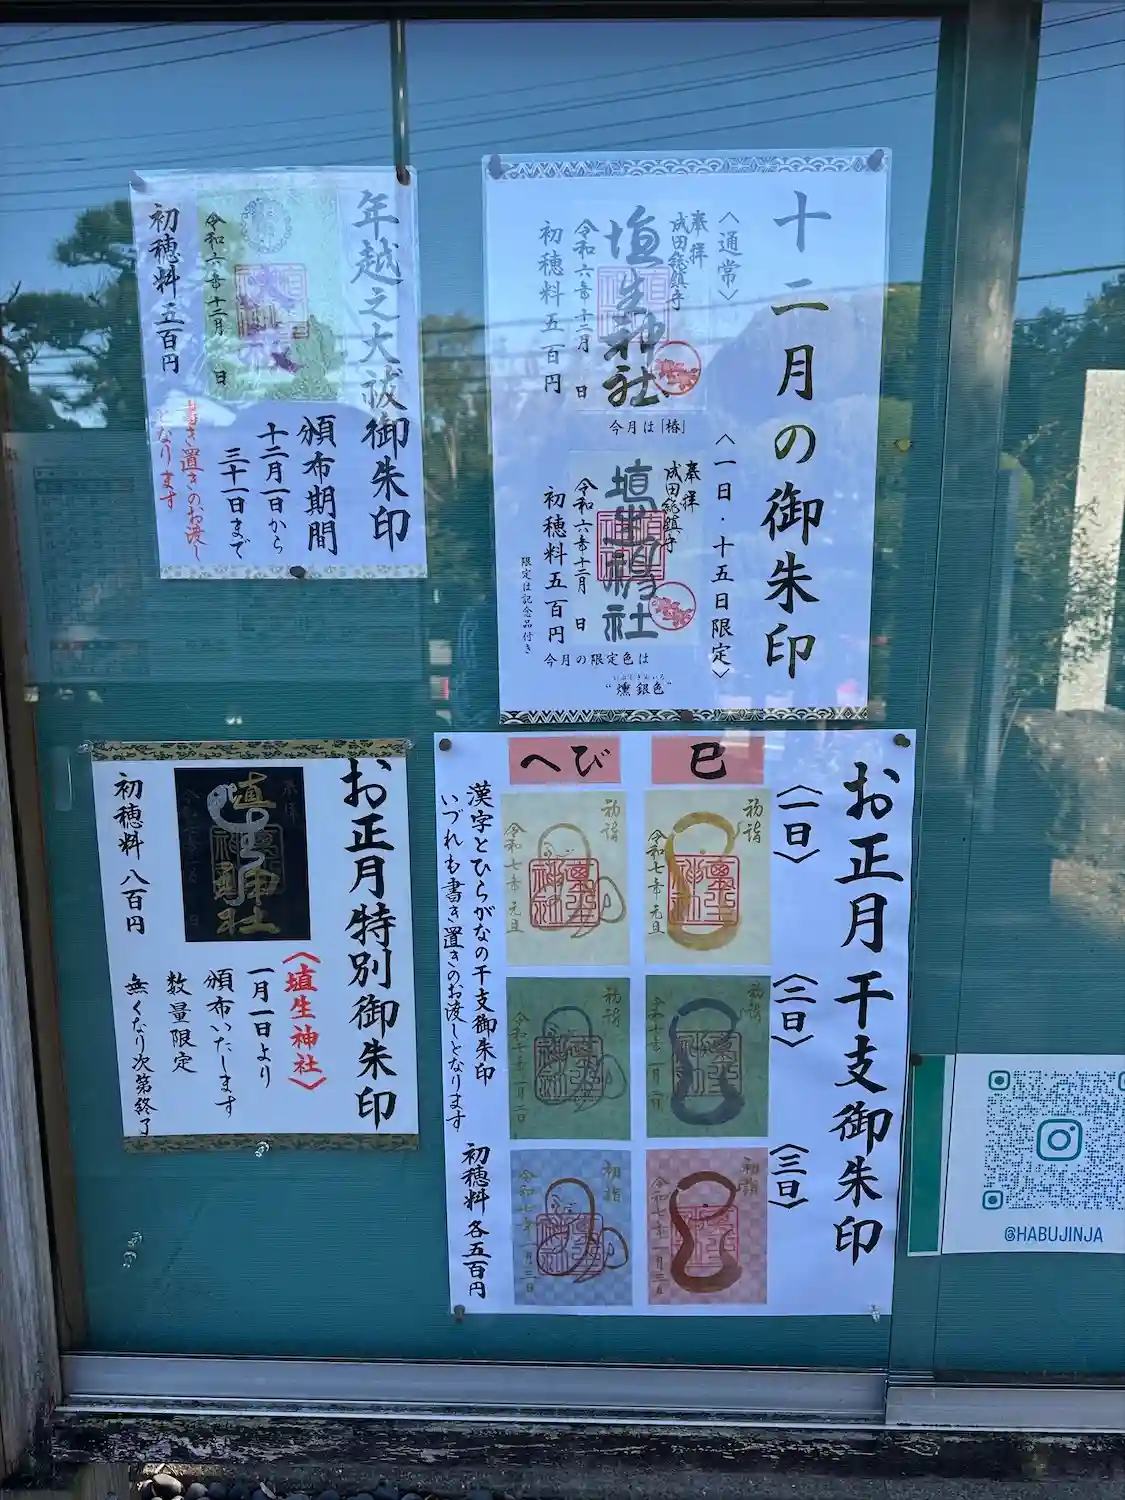 十二月の御朱印
〈通常〉
奉拝
成田総鎮守
埴生神社
令和六年十二月 日
初穂料五百円
今月は「椿」
〈一日・十五日限定〉
奉拝
成田総鎮守
埴生神社
令和六年十二月 日
初穂料五百円
限定は記念品付き
今月の限定色は
いぶしぎんいろ
“燻銀色”
年越之大祓御朱印
令和六年十二月 日
初穂料 五百円
頒布期間
十二月一日から
三十一日まで
書き置きのお渡し
となります
お正月特別御朱印
〈埴生神社〉
一月一日より
頒布いたします
数量限定
無くなり次第終了
奉拝
埴生神社
初穂料 八百円
お正月干支御朱印
巳
へび
〈一日〉
初詣
令和七年 元旦
初詣
令和七年 元旦
〈二日〉
初詣
令和七年 一月二日
初詣
令和七年 一月二日
〈三日〉
初詣
令和七年 一月三日
初詣
令和七年 一月三日
漢字とひらがなの干支御朱印
いづれも書き置きのお渡しとなります
初穂料 各五百円
@HABUJINJA